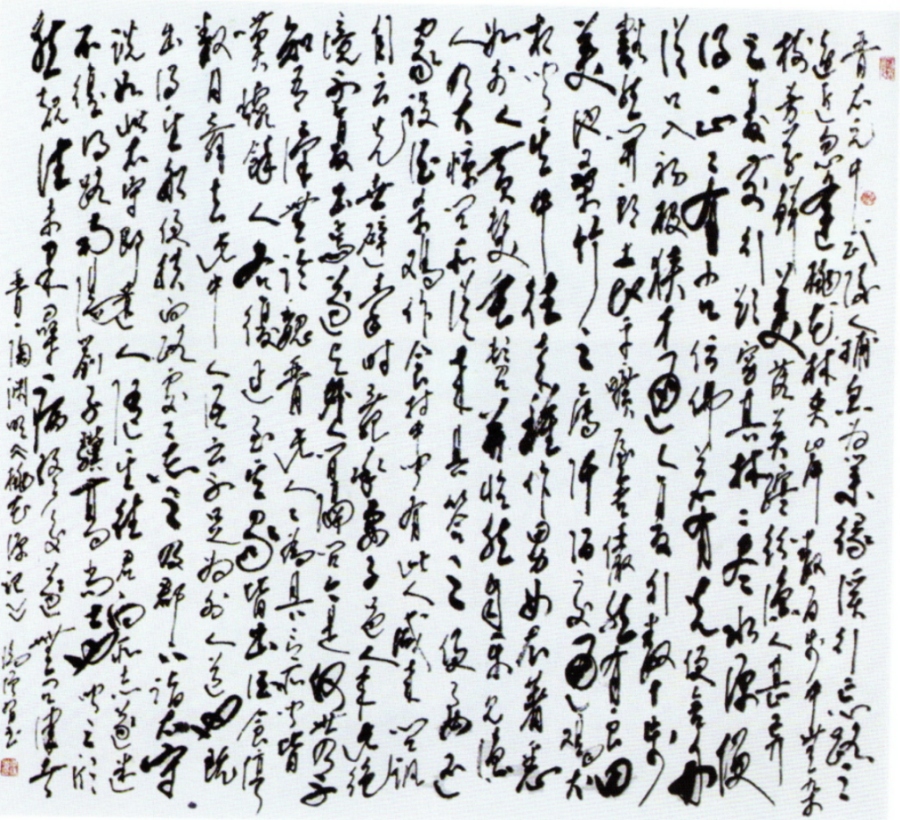 晋太元中武陵人捕魚為業緣溪行忘路之
遠近忽逢桃花林夾岸數百步中無雜
樹芳草鮮美落英繽紛漁人甚異
之復前行欲窮其林林盡水源便
得一山山有小口仿佛若有光便舍船
從口入初極狹才通人復行數十步
豁然開朗土地平曠屋舍儼然有良田
美池桑竹之屬阡陌交通雞犬
相聞其中往來種作男女衣著悉
如外人黃髮垂髫並怡然自樂見漁
人乃大驚問所從來具答之便要還
家設酒殺雞作食村中聞有此人咸來問訊
自云先世避秦時亂率妻子邑人來此絕
境不復出焉遂與外人間隔問今是何世乃不
知有漢無論魏晋此人一一為具言所聞皆
嘆惋餘人各復延至其家皆出酒食停
數日辭去此中人語云不足為外人道也既
出得其船便扶向路處處志之及郡下詣太守
說如此太守即遣人隨其往尋向所志遂迷
不復得路南陽劉子驥高尚士也聞之欣
然規往未果尋病終後遂無問津者
晋陶淵明《桃花源記》